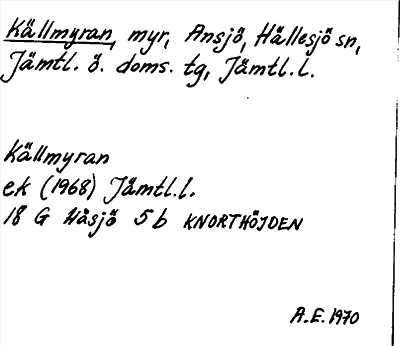 Källmyran, myr, Ansjö, Hällesjö sn,
Jämtl. ö. doms. tg, Jämtl.l.
Källmyran
ek (1968) Jämtl.l.
18 G Håsjö 5b KNORTHÖJDEN
A.E. 1970